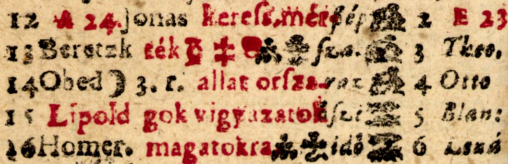 12 A 24. Jonas kereszt, mér- ſép 2 E 23
13 Beretzk ték ſza. 3 Theo.
14 Obed 3. r. allat orſza- 4 Otto
15 Lipold gok vigyazatok 5 Blan:
16 Homer. magatokra idő 6